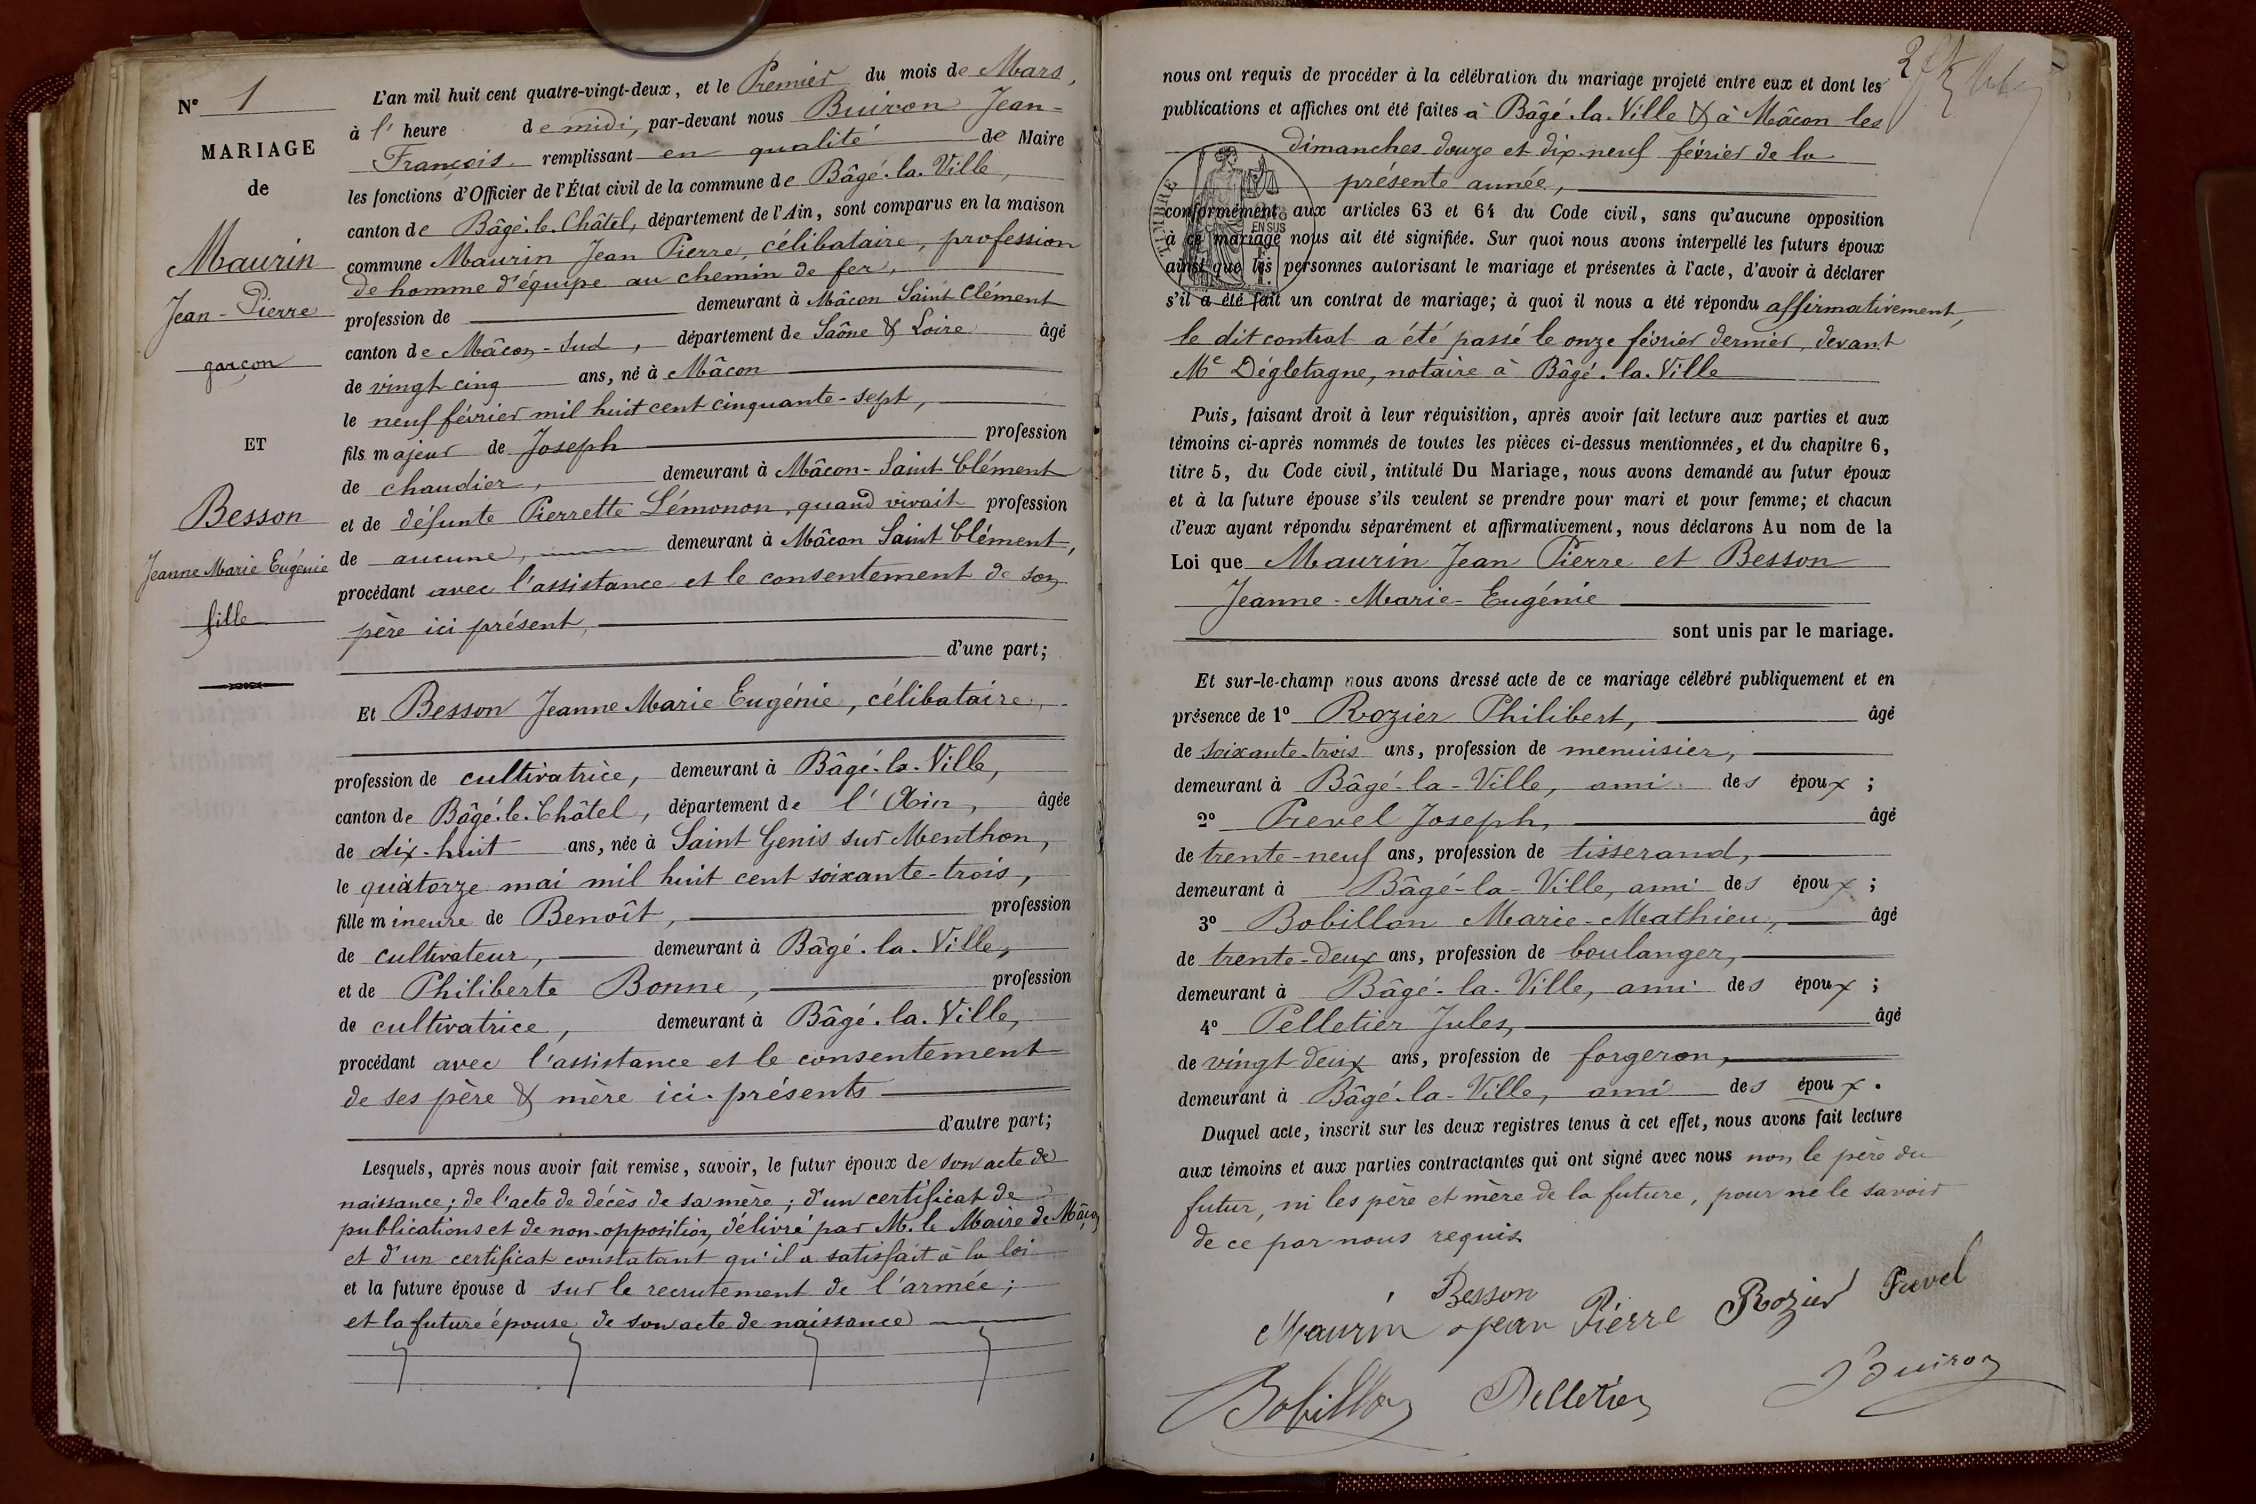 N° 1
MARIAGE
de
Maurin
Jean-Pierre
garçon
ET
Besson
Jeanne Marie Eugénie
fille
L'an mil huit cent quatre-vingt-deux, et le Premier du mois de Mars,
à l' heure de midi, par-devant nous Buiron Jean-
François remplissant en qualité de Maire
les fonctions d'Officier de l'État civil de la commune de Bâgé-la-Ville,
canton de Bâgé-le-Châtel, département de l'Ain, sont comparus en la maison
commune Maurin Jean Pierre, célibataire, profession
de homme d'équipe au chemin de fer,
profession de demeurant à Mâcon Saint Clément
canton de Mâcon-Sud, département de Saône & Loire âgé
de vingt cinq ans, né à Mâcon
le neuf février mil huit cent cinquante-sept,
fils majeur de Joseph profession
de chaudier, demeurant à Mâcon-Saint-Clément
et de défunte Pierrette Lémonon, quand vivait profession
de aucune, demeurant à Mâcon Saint Clément,
procédant avec l'assistance et le consentement de son
père ici présent,
d'une part;
Et Besson Jeanne Marie Eugénie, célibataire,
profession de cultivatrice, demeurant à Bâgé-la-Ville,
canton de Bâgé-le-Châtel, département de l'Ain, âgée
de dix-huit ans, née à Saint Genis sur Menthon,
le quatorze mai mil huit cent soixante-trois,
fille mineure de Benoît, profession
de cultivateur, demeurant à Bâgé-la-Ville,
et de Philiberte Bonne, profession
de cultivatrice, demeurant à Bâgé-la-Ville,
procédant avec l'assistance et le consentement
de ses père & mère ici-présents
d'autre part;
Lesquels, après nous avoir fait remise, savoir, le futur époux de son acte de
naissance; de l'acte de décès de sa mère; d'un certificat de
publications et de non-opposition, délivré par M. le Maire de Mâcon
et d'un certificat constatant qu'il a satisfait à la loi
et la future épouse d sur le recrutement de l'armée;
et la future épouse de son acte de naissance
nous ont requis de procéder à la célébration du mariage projeté entre eux et dont les
publications et affiches ont été faites à Bâgé-la-Ville & à Mâcon les
dimanches douze et dix-neuf février de la
présente année,
TIMBRE
EN SUS
conformément aux articles 63 et 64 du Code civil, sans qu'aucune opposition
à ce mariage nous ait été signifiée. Sur quoi nous avons interpellé les futurs époux
ainsi que les personnes autorisant le mariage et présentes à l'acte, d'avoir à déclarer
s'il a été fait un contrat de mariage; à quoi il nous a été répondu affirmativement,
le dit contrat a été passé le onze février dernier, devant
Me Dégletagne, notaire à Bâgé-la-Ville
Puis, faisant droit à leur réquisition, après avoir fait lecture aux parties et aux
témoins ci-après nommés de toutes les pièces ci-dessus mentionnées, et du chapitre 6,
titre 5, du Code civil, intitulé Du Mariage, nous avons demandé au futur époux
et à la future épouse s'ils veulent se prendre pour mari et pour femme; et chacun
d'eux ayant répondu séparément et affirmativement, nous déclarons Au nom de la
Loi que Maurin Jean Pierre et Besson
Jeanne-Marie-Eugénie
sont unis par le mariage.
Et sur-le-champ nous avons dressé acte de ce mariage célébré publiquement et en
présence de 1° Rozier Philibert, âgé
de soixante-trois ans, profession de menuisier,
demeurant à Bâgé-la-Ville, ami des époux;
2° Prevel Joseph, âgé
de trente-neuf ans, profession de tisserand,
demeurant à Bâgé-la-Ville, ami des époux;
3° Bobillon Marie-Mathieu, âgé
de trente-deux ans, profession de boulanger,
demeurant à Bâgé-la-Ville, ami des époux;
4° Pelletier Jules, âgé
de vingt deux ans, profession de forgeron,
demeurant à Bâgé-la-Ville, ami des époux.
Duquel acte, inscrit sur les deux registres tenus à cet effet, nous avons fait lecture
aux témoins et aux parties contractantes qui ont signé avec nous non le père du
futur, ni les père et mère de la future, pour ne le savoir
de ce par nous requis
Besson
Maurin Jean Pierre Rozier Prevel
Bobillon Pelletier Buiron